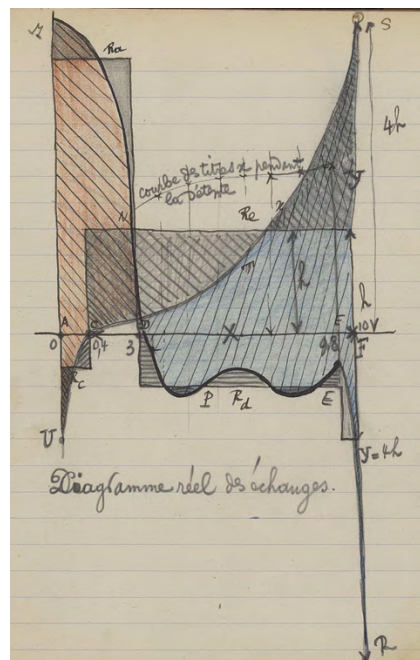 M
S
Ra
4h
courbe des titres x pendant
la Détente
y
N
Re
x
h
h
A
C
B
E
0
0,4
3
9,8
10V
F
C
P
Rd
E
U
y=4h
Diagramme réel des échanges.
R